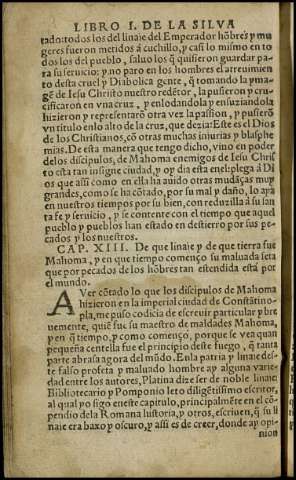 LIBRO I. DE LA SILVA
tado: todos los del linaje del Emperador hõbres y mu
geres fueron metidos á cuchillo, y casi lo mismo en to
dos los del pueblo, saluo los q̃ quisieron guardar pa-
ra su seruicio: y no paro en los hombres el atreuimien
to desta cruel y Diabolica gente, q̃ tomando la yma-
gẽ de Iesu Christo nuestro redẽtor, la pusieron y cru-
cificaron en vna cruz, y enlodandola y ensuziandola
hizieron y representarõ otra vez la passion, y pusierõ
vn titulo enlo alto de la cruz, que dezia: Este es el Dios
de los Christianos, cõ otras muchas injurias y blasphe
mias. De esta manera que tengo dicho, vino en poder
delos discipulos, de Mahoma enemigos de Iesu Chris
to esta tan insigne ciudad, y oy dia esta enel: plega á Di
os que assi como en ella ha auido otras mudãças muy
grandes, como se ha cõtado, por su mal y daño, lo aya
en nuestros tiempos por su bien, con reduzilla á su san
ta fe y seruicio, y se contente con el tiempo que aquel
pueblo y pueblos han estado en destierro por sus pe-
cados y los nuestros.
CAP. XIII. De que linaje y de que tierra fue
Mahoma, y en que tiempo començo su maluada seta
que por pecados de los hõbres tan estendida está por
el mundo.
AVer cõtado lo que los discipulos de Mahoma
hizieron en la imperial ciudad de Constãtino-
pla, me puso codicia de escreuir particular y bre
uemente, quiẽ fue su maestro de maldades Mahoma,
y en q̃ tiempo, y como començo, porque se vea quan
pequeña centella fue el principio deste fuego, q̃ tanta
parte abrasa agora del mũdo. En la patria y linaje des-
te falso profeta y maluado hombre ay alguna varie-
dad entre los autores, Platina dize ser de noble linaje:
Bibliotecario y Pomponio leto diligẽtissimo escritor,
al qual yo sigo en este capitulo, principalmẽte en el cõ-
pendio dela Romana historia, y otros, escriuen, q̃ su li
naje era baxo y oscuro, y assi es de creer, donde ay opi-
nion